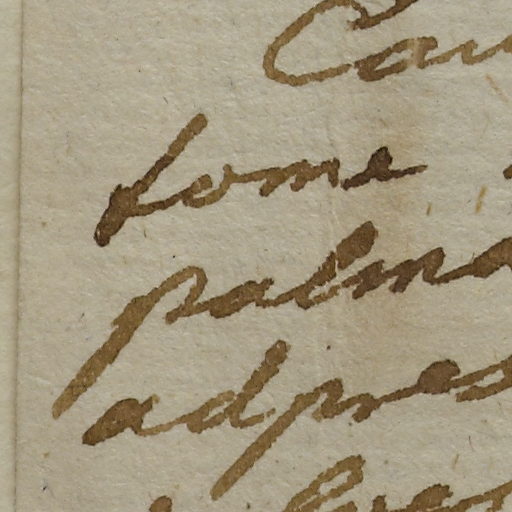 Cau
tome
palma
adpres